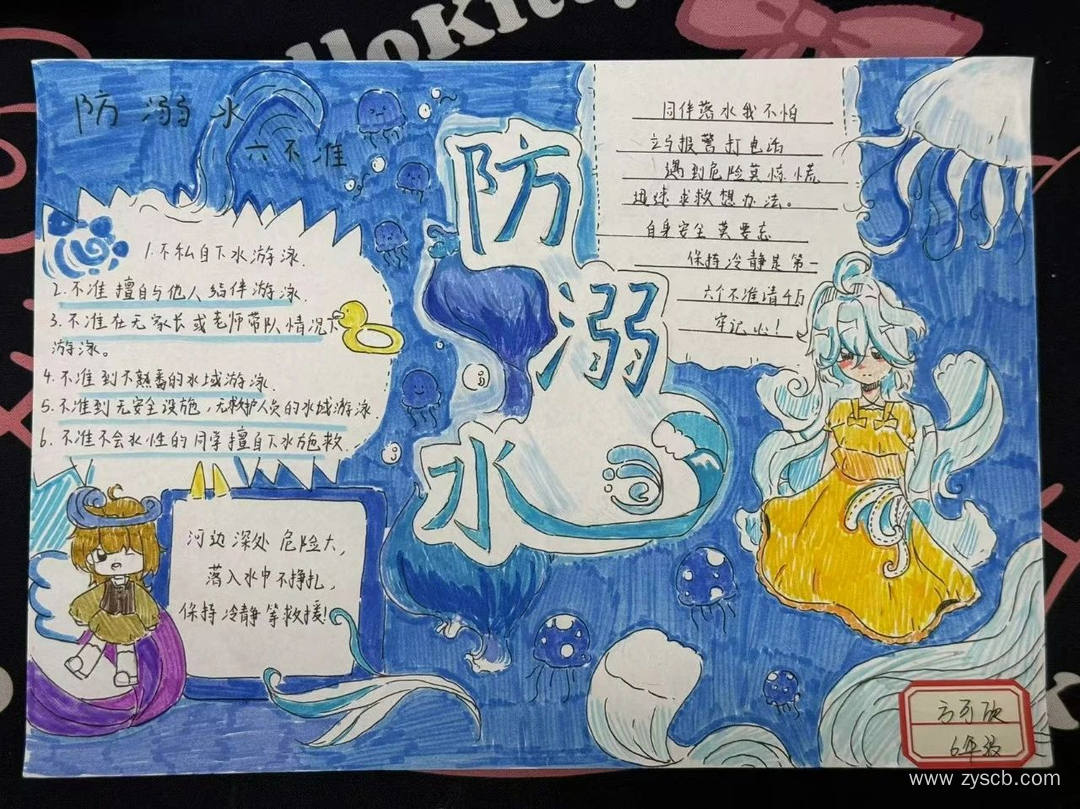 HelloKitty
防溺水
六不准
1.不私自下水游泳.
2.不准擅自与他人结伴游泳.
3.不准在无家长或老师带队情况下
游泳。
4.不准到不熟悉的水域游泳.
5.不准到无安全设施,无救护人员的水域游泳.
6.不准不会水性的同学擅自下水施救.
河边深处危险大,
落入水中不挣扎,
保持冷静等救援!
防
溺
水
同伴落水我不怕
立马报警打电话
遇到危险莫惊慌
迅速求救想办法。
自身安全莫要忘
保持冷静是第一
六个不准请千万
牢记心!
6年级
www.zyscb.com